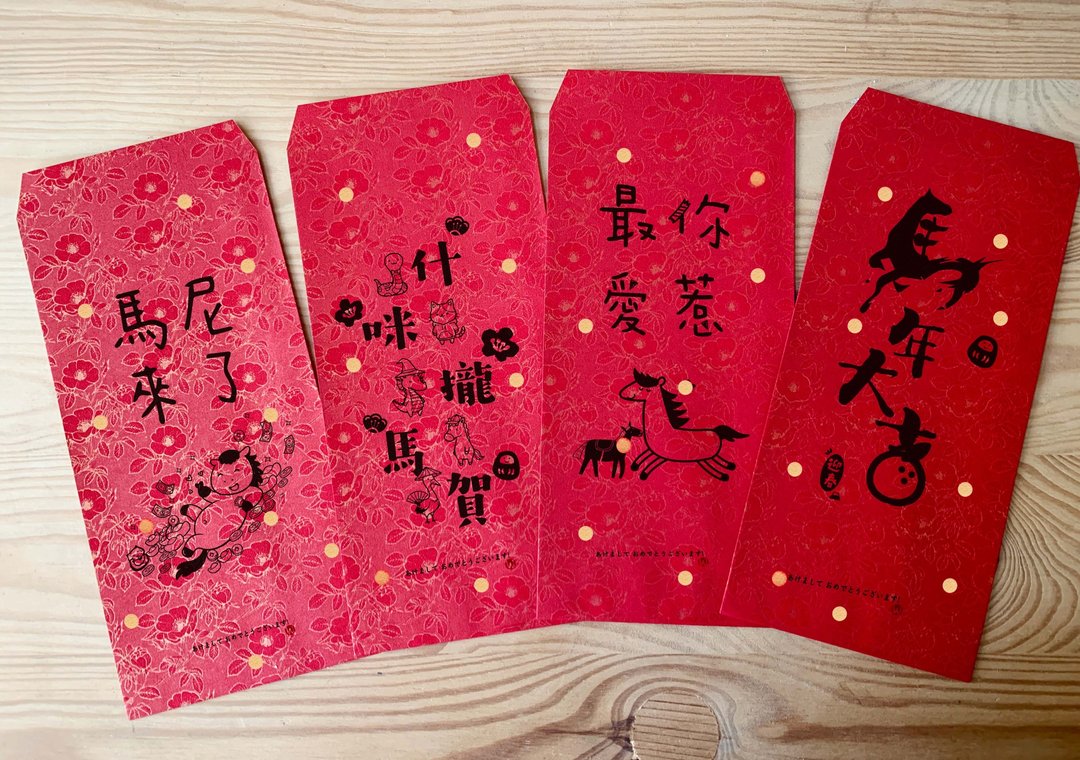 馬尼
來了
あけまして おめでとうございます!
什
咪
攏
馬
賀
あけまして おめでとうございます!
最愛
你惹
あけまして おめでとうございます!
馬年大吉
迎春
あけまして おめでとうございます!